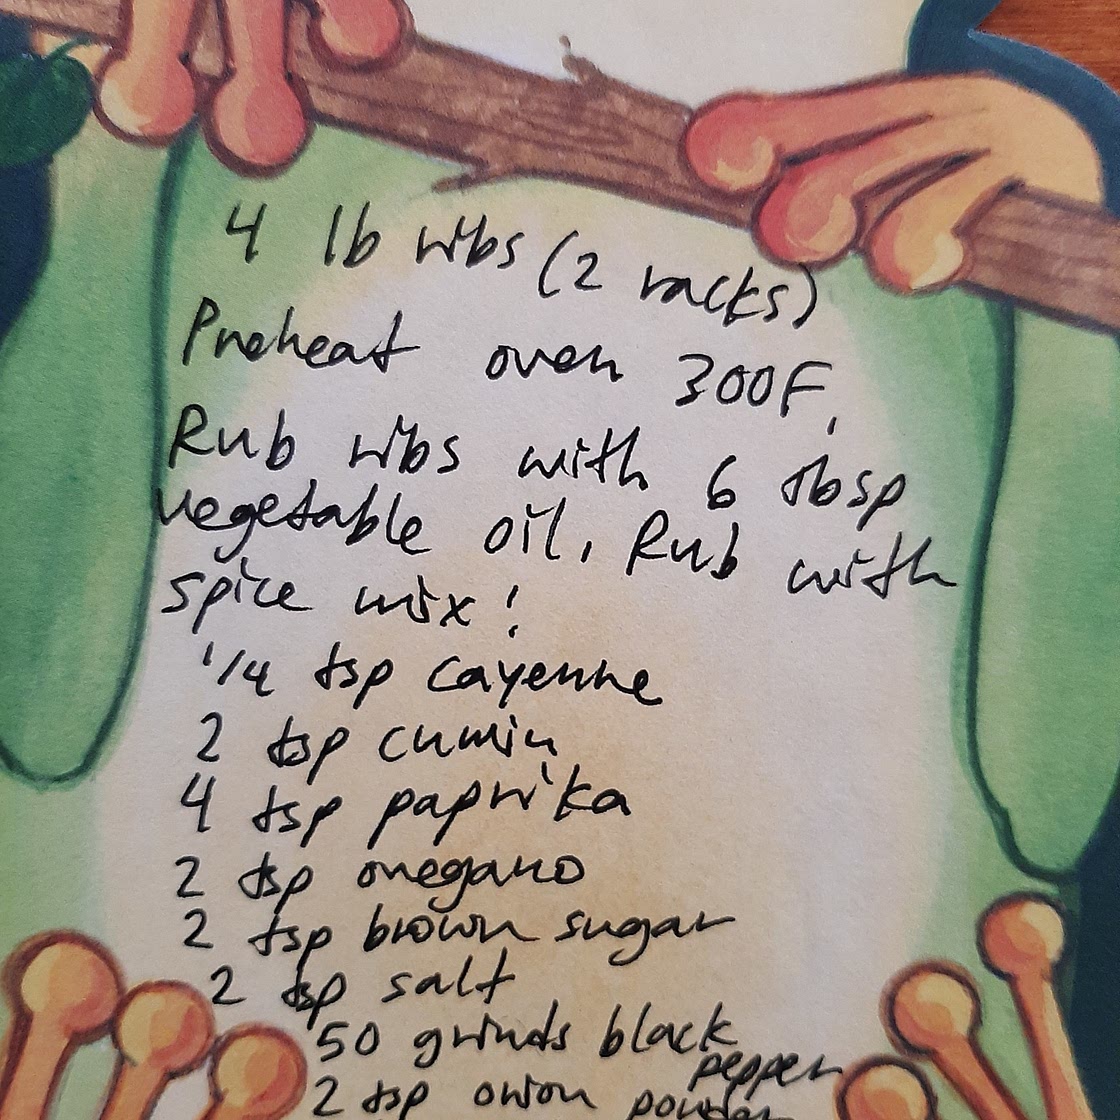 4 lb ribs (2 racks)
Preheat oven 300F.
Rub ribs with 6 tbsp
vegetable oil. Rub with
spice mix!
1/4 tsp cayenne
2 tsp cumin
4 tsp paprika
2 tsp oregano
2 tsp brown sugar
2 tsp salt
50 grinds black
pepper
2 tsp onion powder